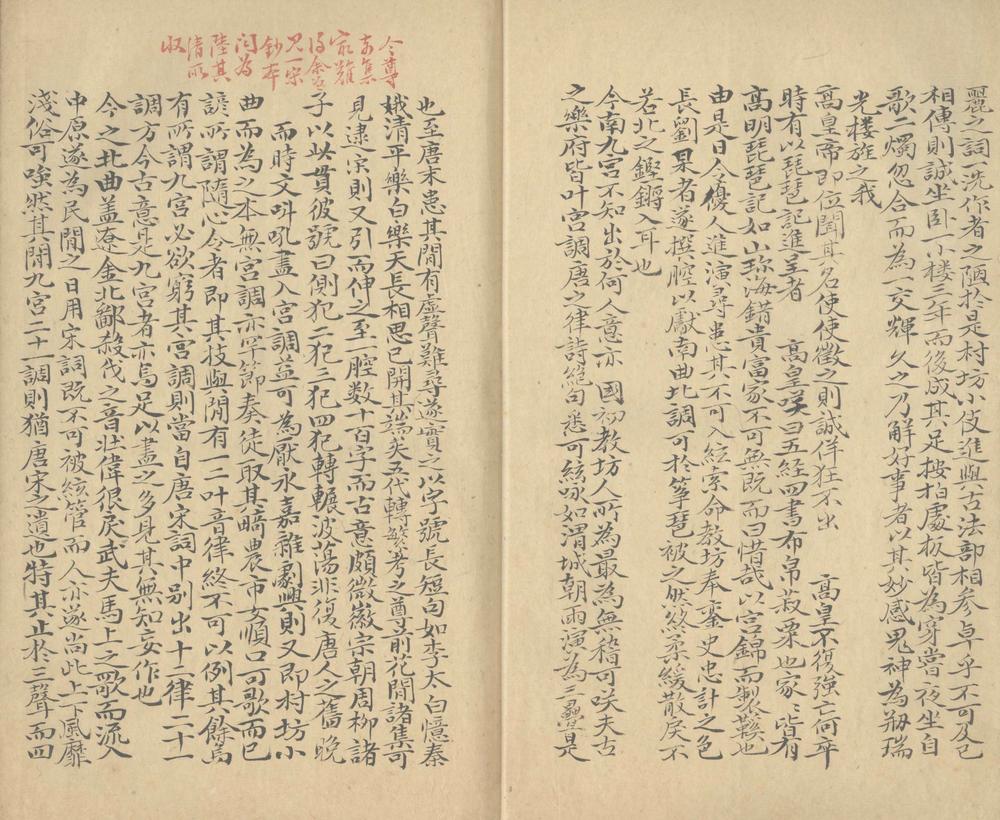 麗之詞一洗作者之陋於是村坊小伎進與古法部相參卓乎不可及已
相傳則誠坐卧一小樓三年而後成其足按拍處板皆為穿嘗夜坐自
歌二燭忽合而為一交輝久之乃解好事者以其妙感鬼神為刱瑞
光樓旌之我
高皇帝即位聞其名使使徵之則誠佯狂不出　高皇不復強亡何卒
時有以琵琶記進呈者　高皇咲曰五經四書布帛菽粟也家〻皆有
高明琵琶記如山珍海錯貴富家不可無既而曰惜哉以宮錦而製鞵也
由是日令優人進演尋患其不可入絃索命教坊奉鑾史忠計之色
長劉杲者遂撰腔以獻南曲北調可於筝琶被之然終柔緩散戾不
若北之鏗鏘入耳也
今南九宮不知出於何人意亦　國初教坊人所為最為無稽可咲夫古
之樂府皆叶宮調唐之律詩絕句悉可絃咏如渭城朝雨演為三疊是
也至唐末患其閒有虛聲難尋遂實之以字號長短句如李太白憶秦
娥清平樂白樂天長相思已開其端矣五代轉繁考之尊前花閒諸集可
見逮宋則又引而伸之至一腔数十百字而古意頗微徽宗朝周柳諸
子以此貫彼號曰側犯二犯三犯四犯轉輾波蕩非復唐人之舊晚
而時文叫吼盡入宮調益可為厭永嘉雜劇興則又即村坊小
曲而為之本無宮調亦罕節奏徒取其畸農市女順口可歌而已
諺所謂隨心令者即其技與閒有一二叶音律終不可以例其餘烏
有所謂九宮必欲窮其宮調則當自唐宋詞中別出十二律二十一
調方合古意是九宮者亦烏足以盡之多見其無知妄作也
今之北曲盖遼金北鄙殺伐之音壯偉很戾武夫馬上之歌而流入
中原遂為民閒之日用宋詞既不可被絃管而人亦遂尚此上下風靡
淺俗可嗤然其閒九宮二十一調則猶唐宋之遺也特其止於三聲而四
今尊
前集
最難
得余
見一宋
鈔本
問為
陸其
清所
收